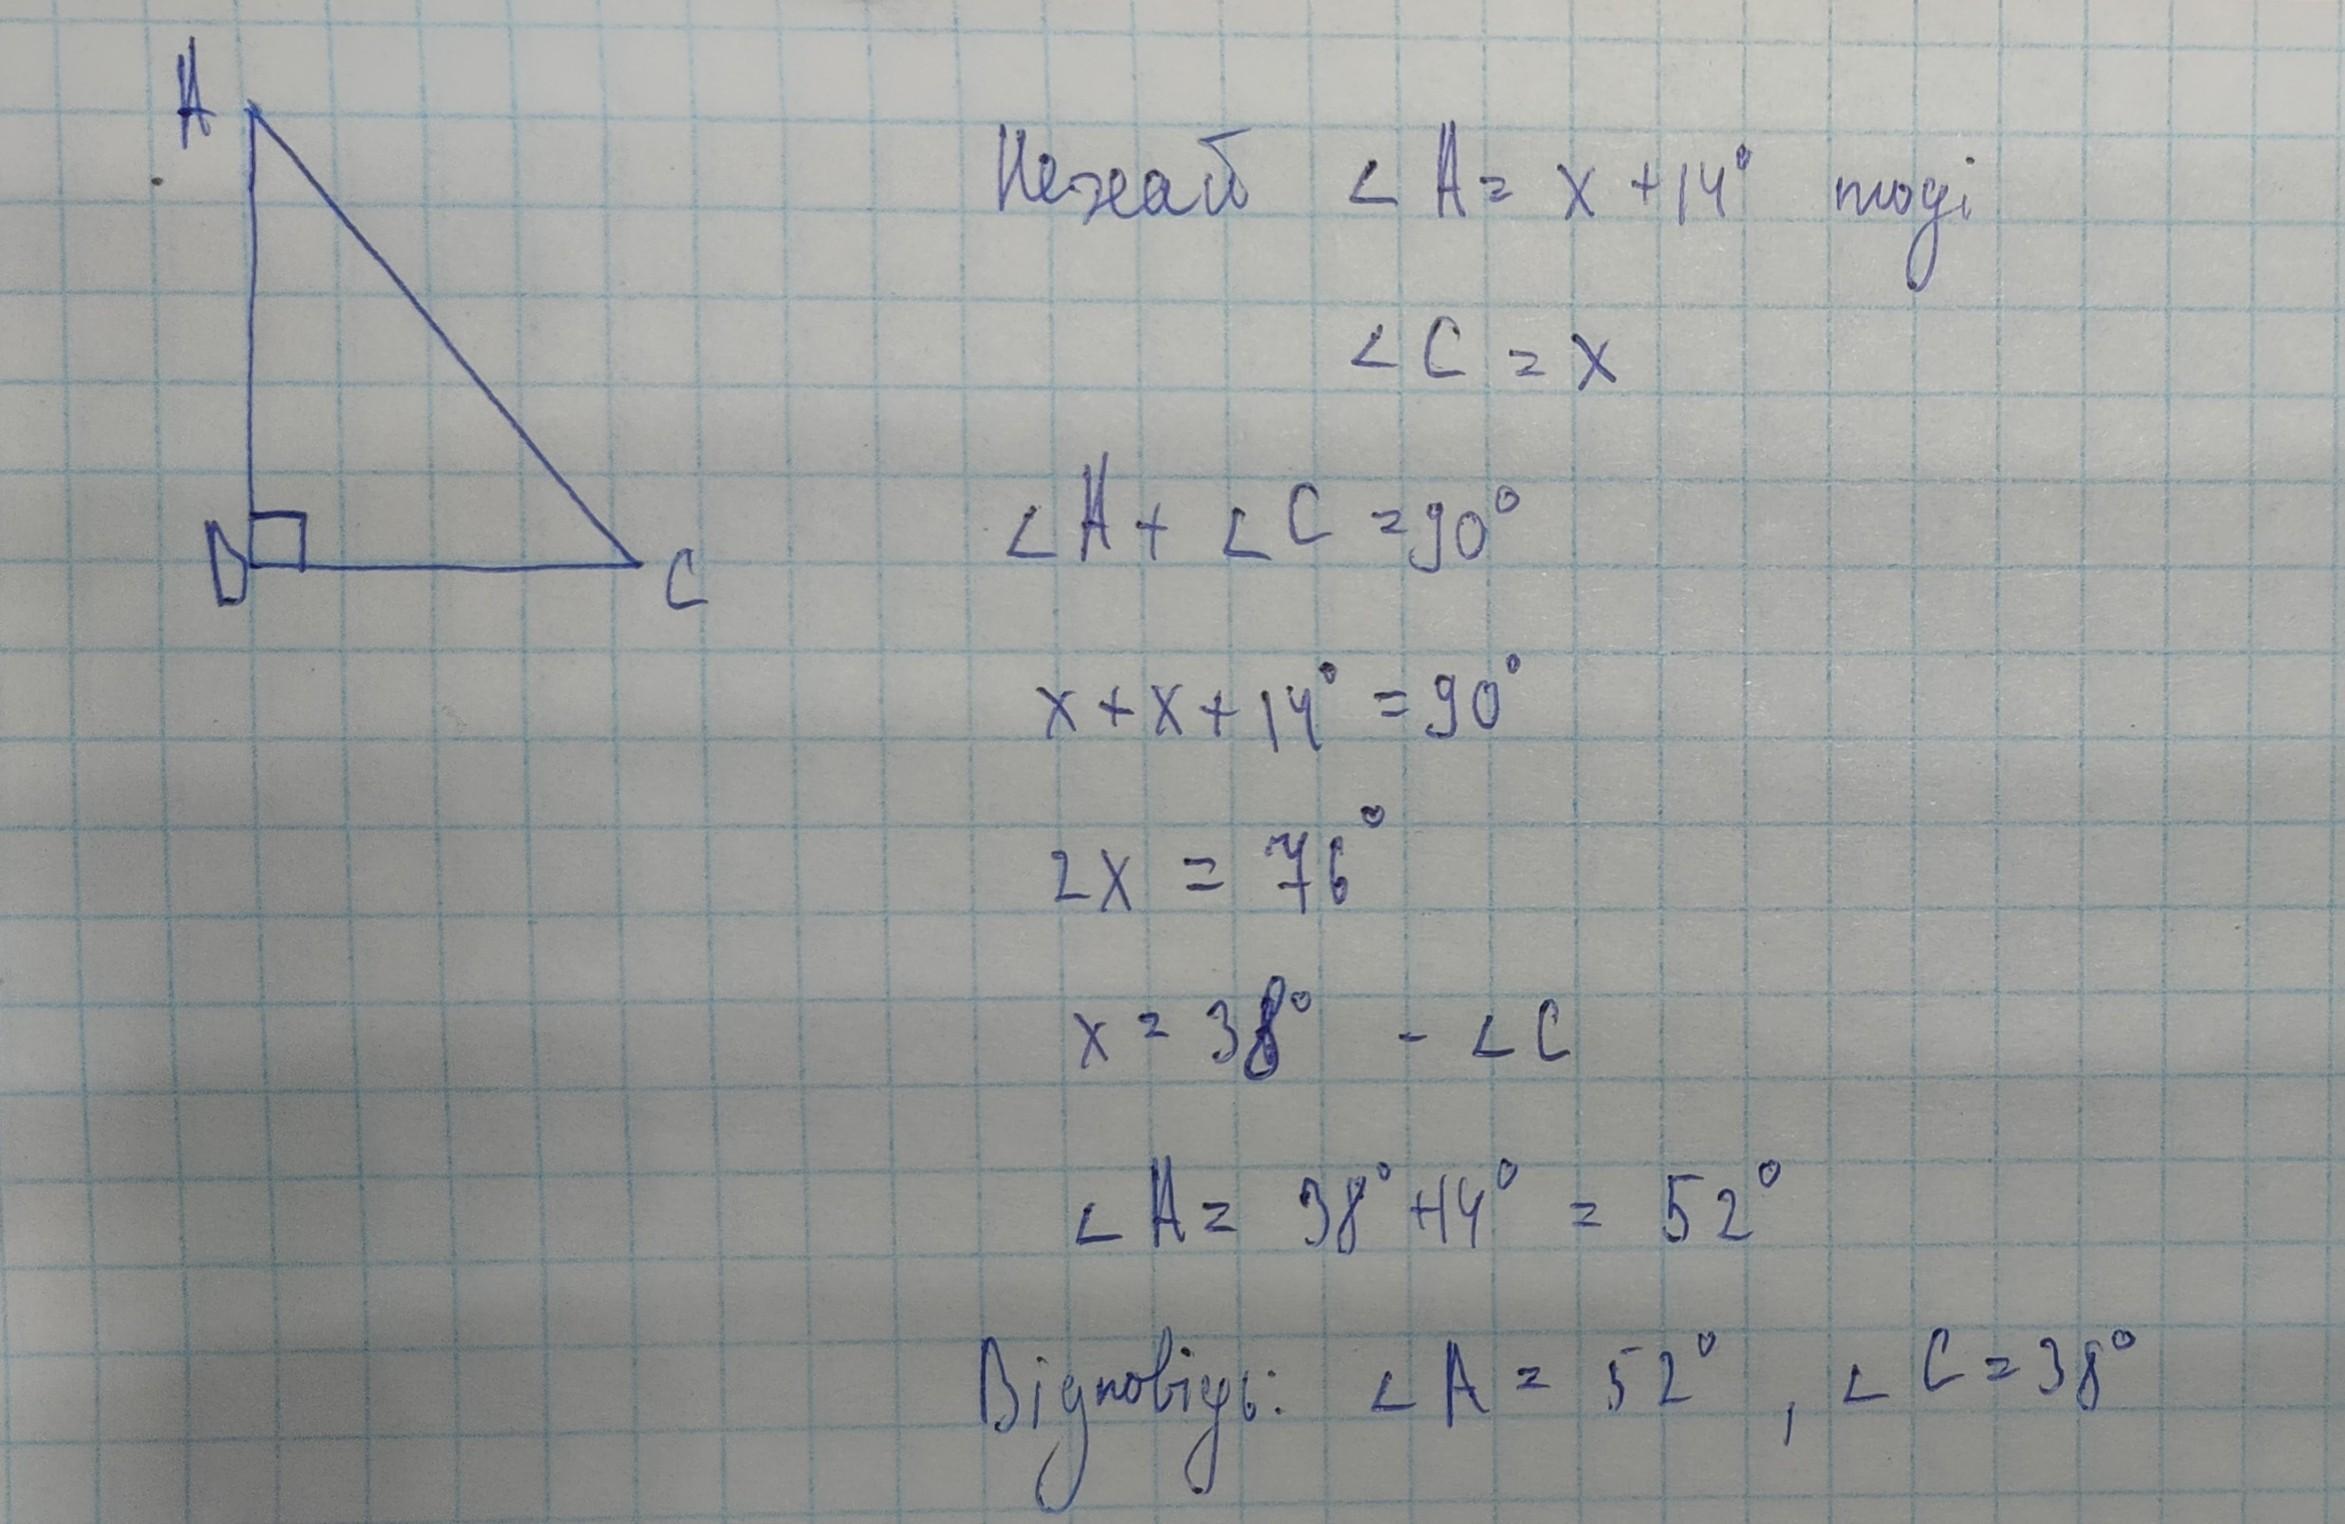 A
D
C
Нехай ∠ A = x + 14° тоді
∠ C = x
∠ A + ∠ C = 90°
x + x + 14° = 90°
2x = 76°
x = 38° - ∠ C
∠ A = 38° + 14° = 52°
Відповідь: ∠ A = 52° , ∠ C = 38°